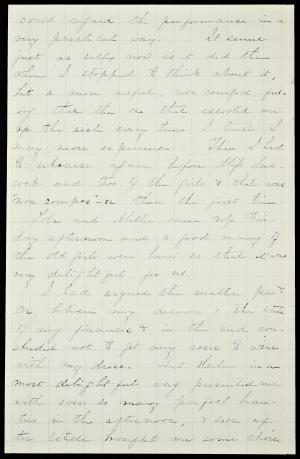 could regard the performance in a
very practical way. It seems
just as silly now as it did then
when I stopped to think about it,
but a more awful, non compos, feel-
ing than the one that escorted me
up the aisle every time I trust I
may never experience. Then I had
to rehearse again before Miss
cock and two of the girls & that was
"non compos"-er than the first time
and Mollie came up Fri-
day afternoon and a good many of
the old girls were here so that it was
very delightful for us.
I had argued the matter pro &
con between my desires & the state
of my finances & in the end con-
cluded not to get any roses to wear
with my dress. But Helen in a
most delightful way presented me
with even so many perfect beau-
ties in the afternoon, & soon af-
ter Estelle brought me some choice